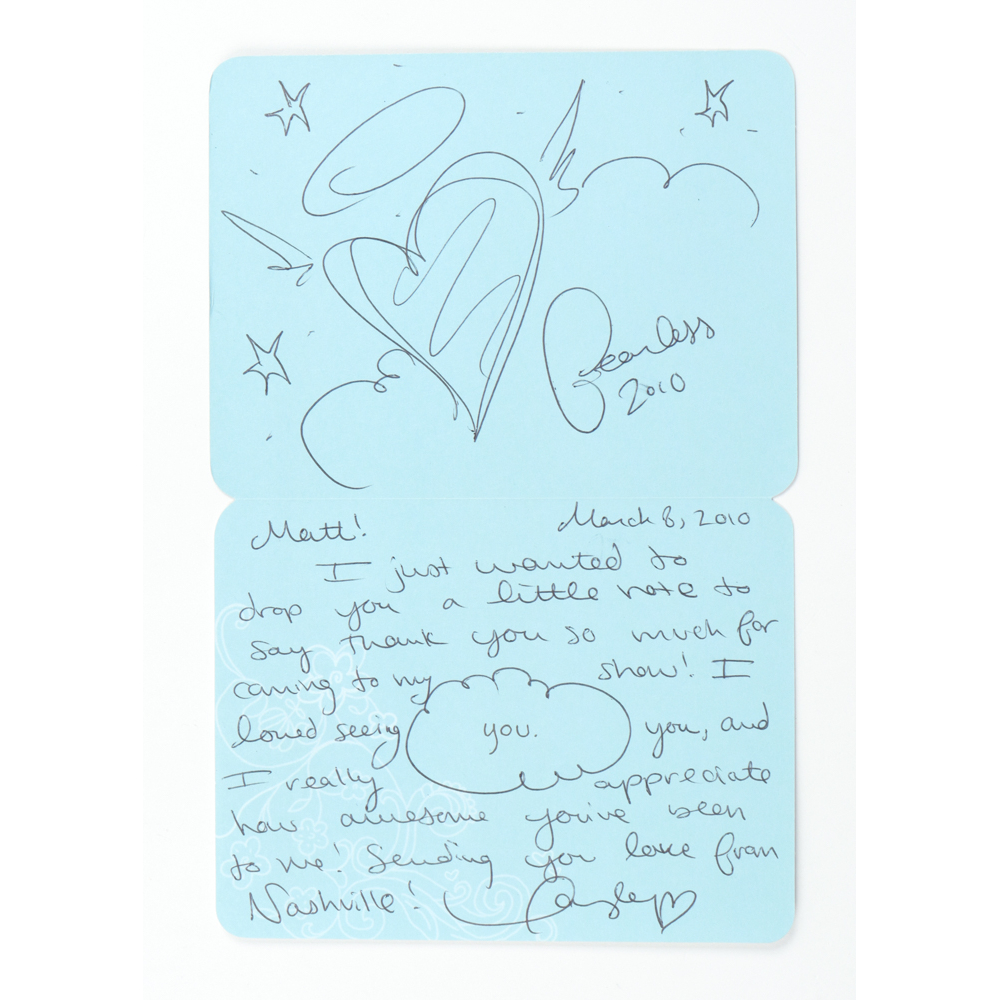 Fearless
2010
Matt! March 8, 2010
I just wanted to
drop you a little note to
say thank you so much for
coming to my show! I
loved seeing you. you, and
I really appreciate
how awesome you've been
to me! Sending you love from
Nashville!